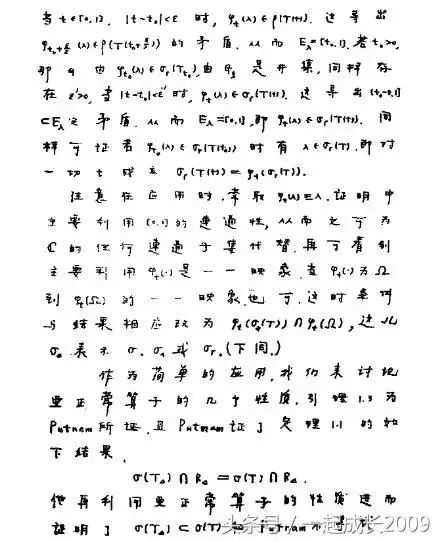 当 t∈[0,1], |t-t₀|<ε 时, φₜ(λ)∈ρ(T(t)). 这 导 出
的 矛 盾. 从 而 E_λ=[0,1]. 若 t₀>0,
那 么 由 是 开 集, 同 样 存
在 ε'>0, 当 |t-t₀|<ε' 时, φₜ(λ)∈σᵣ(T(t)). 这 导 出 (t₀-ε,t₀]
⊂E_λ 之 矛 盾. 从 而 E_λ=[0,1], 即 φₜ(λ)∈σᵣ(T(t)). 同
样 可 证 若 时 有 λ∈σᵣ(T), 即 对
一 切 t 成 立 σᵣ(T(t))=φₜ(σᵣ(T)).
注 意 在 应 用 时, 常 取 φₜ(λ)≡λ. 证 明 中
主 要 利 用 [0,1] 的 连 通 性, 从 而 它 可 为
C 的 任 何 连 通 子 集 代 替. 再 可 看 到
主 要 利 用 φₜ(·) 是 一 一 映 象, φₜ(·) 为 Ω
到 φₜ(Ω) 的 一 一 映 象 也 可. 这 时 条 件
与 结 果 相 应 改 为 φₜ(σₐ(T))∩φₜ(Ω), 这 儿
σₐ 表 示 σ, σₐ 或 σᵣ. (下 同.)
作 为 简 单 的 应 用, 我 们 来 讨 论
亚 正 常 算 子 的 几 个 性 质. 引 理 1.3 为
Putnam 所 证, 且 Putnam 证 了 定 理 1.1 的 如
下 结 果.
σ(Tₐ)∩Rₐ=σ(T)∩Rₐ.
他 再 利 用 亚 正 常 算 子 的 性 质 进 而
证 明 了 σ(Tₐ)⊂σ(T) Putnam
头条号 / 一起成长2009